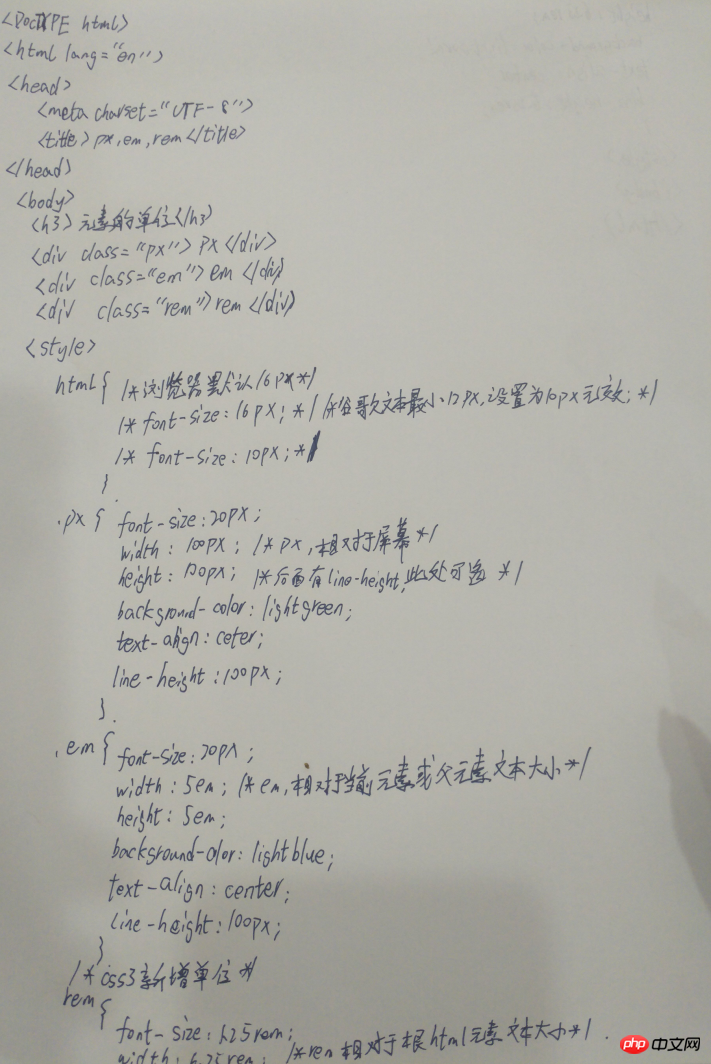 <DOCTYPE html>
<html lang="en">
<head>
<meta charset="UTF-8">
<title>px,em,rem</title>
</head>
<body>
<h3>元素的单位</h3>
<div class="px">px</div>
<div class="em">em</div>
<div class="rem">rem</div>
<style>
html{ /*浏览器默认16px*/
/* font-size:16px; */ /*谷歌文本最小12px,设置为10px无效;*/
/* font-size:10px; */
}
.px{ font-size:20px;
width: 100px; /*px,相对于屏幕*/
height: 100px; /*后面有line-height,此处可选*/
background-color: lightgreen;
text-align: ceter;
line-height:100px;
}
.em{ font-size:20px;
width: 5em; /*em,相对于当前元素或父元素文本大小*/
height: 5em;
background-color: lightblue;
text-align: center;
line-height:100px;
}
/*css3新增单位*/
rem{
font-size: 1.25rem;
width: 6.25rem; /*rem相对于根html元素文本大小*/
php中文网